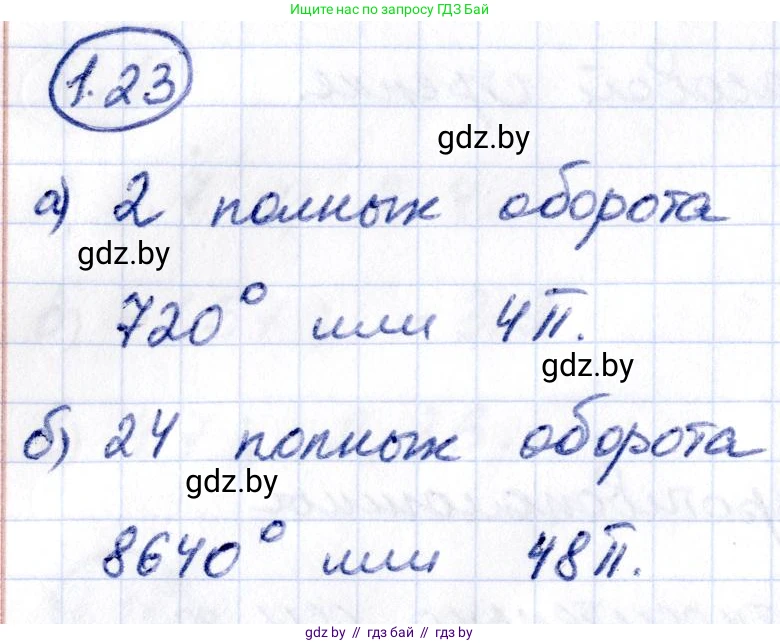 Ищите нас по запросу ГДЗ Бай
1.23
gdz.by
а) 2 полных оборота
gdz.by
720° или 4π.
gdz.by
б) 24 полных оборота
gdz.by
8640° или 48π.
gdz.by // гдз бай // гдз by